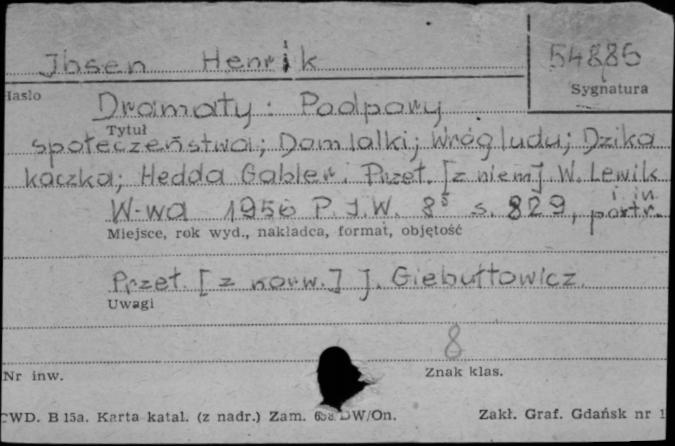 Ibsen Henrik
54885
Hasło
Sygnatura
Dramaty: Podpory
Tytuł
społeczeństwa; Dom lalki; Wróg ludu; Dzika
kaczka; Hedda Gabler. Przeł. [z niem] W. Lewik
i in
W-wa 1956 P.I.W. 8° s. 829, portr.
Miejsce, rok wyd., nakładca, format, objętość
Przeł. [z norw.] J. Giebułtowicz.
Uwagi
8
Nr inw.
Znak klas.
CWD. B 15a. Karta katal. (z nadr.) Zam. DW/On. Zakł. Graf. Gdańsk nr 1